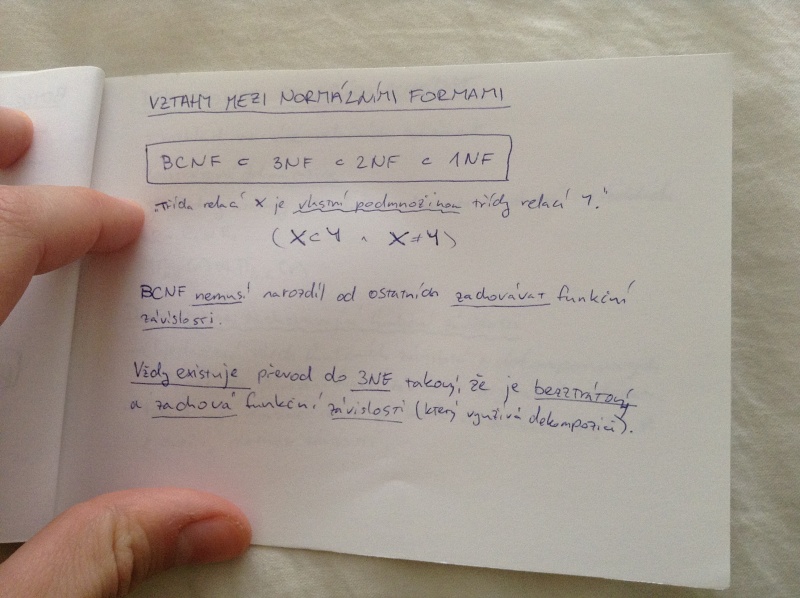 VZTAHY MEZI NORMÁLNÍMI FORMAMI
BCNF ⊂ 3NF ⊂ 2NF ⊂ 1NF
„Třída relací X je vlastní podmnožinou třídy relací Y.“
(X⊂Y ∧ X≠Y)
BCNF nemusí narozdíl od ostatních zachovávat funkční
závislosti.
Vždy existuje převod do 3NF takový, že je bezztrátový
a zachová funkční závislosti (který využívá dekompozici).